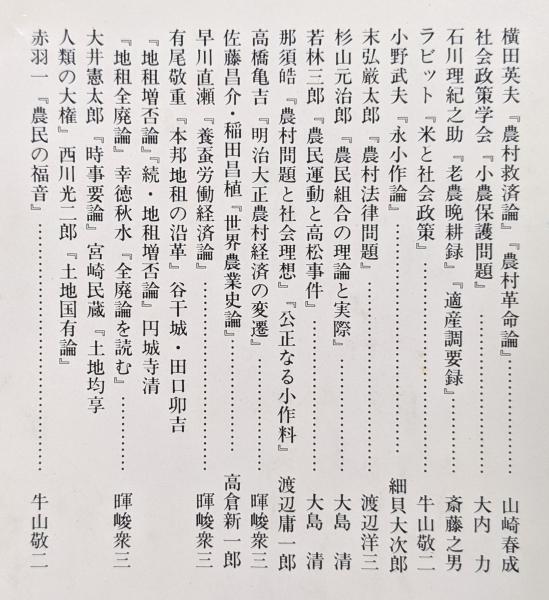 横田英夫『農村救済論』『農村革命論』…………………山崎春成
社会政策学会『小農保護問題』…………………大内　力
石川理紀之助『老農晩耕録』『適産調要録』…………斎藤之男
ラビット『米と社会政策』…………………牛山敬二
小野武夫『永小作論』…………………細貝大次郎
末弘厳太郎『農村法律問題』…………………渡辺洋三
杉山元治郎『農民組合の理論と実際』…………………大島　清
若林三郎『農民運動と高松事件』…………………大島　清
那須皓『農村問題と社会理想』『公正なる小作料』　渡辺庸一郎
高橋亀吉『明治大正農村経済の変遷』…………………暉峻衆三
佐藤昌介・稲田昌植『世界農業史論』…………………高倉新一郎
早川直瀬『養蚕労働経済論』…………………暉峻衆三
有尾敬重『本邦地租の沿革』谷干城・田口卯吉
『地租増否論』『続・地租増否論』円城寺清
『地租全廃論』幸徳秋水『全廃論を読む』…………暉峻衆三
大井憲太郎『時事要論』宮崎民蔵『土地均享
人類の大権』西川光二郎『土地国有論』
赤羽一『農民の福音』…………………牛山敬二